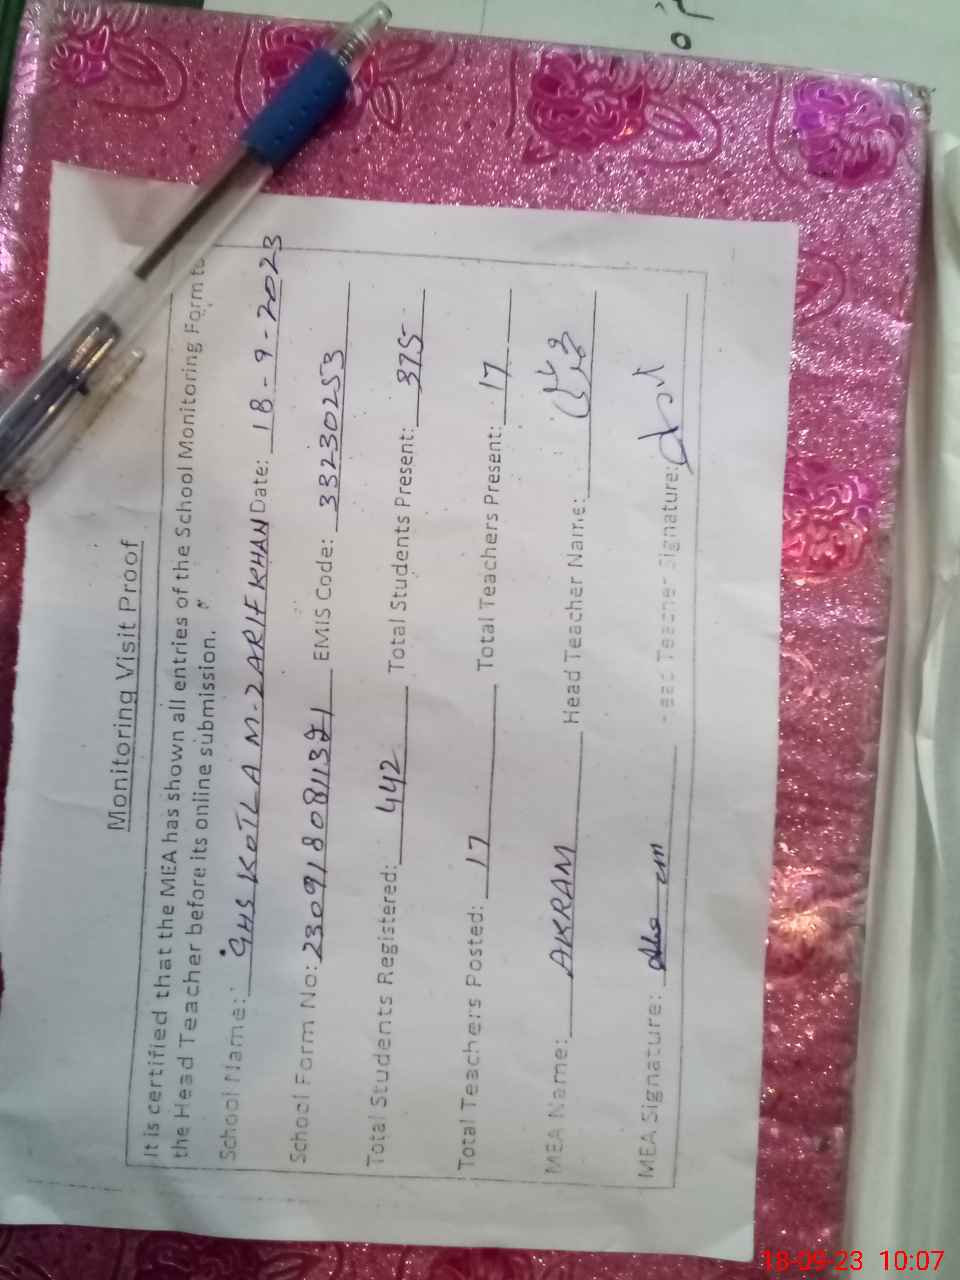 Monitoring Visit Proof
It is certified that the MEA has shown all entries of the School Monitoring Form to
the Head Teacher before its online submission.
School Name: GHS KOTLA M-ZARIF KHAN Date: 18-9-2023
School Form No: EMIS Code: 33230253
Total Students Registered: 442 Total Students Present: 375
Total Teachers Posted: 17 Total Teachers Present: 17
MEA Name: AKRAM Head Teacher Name:
MEA Signature: Head Teacher Signature:
18-09-23 10:07